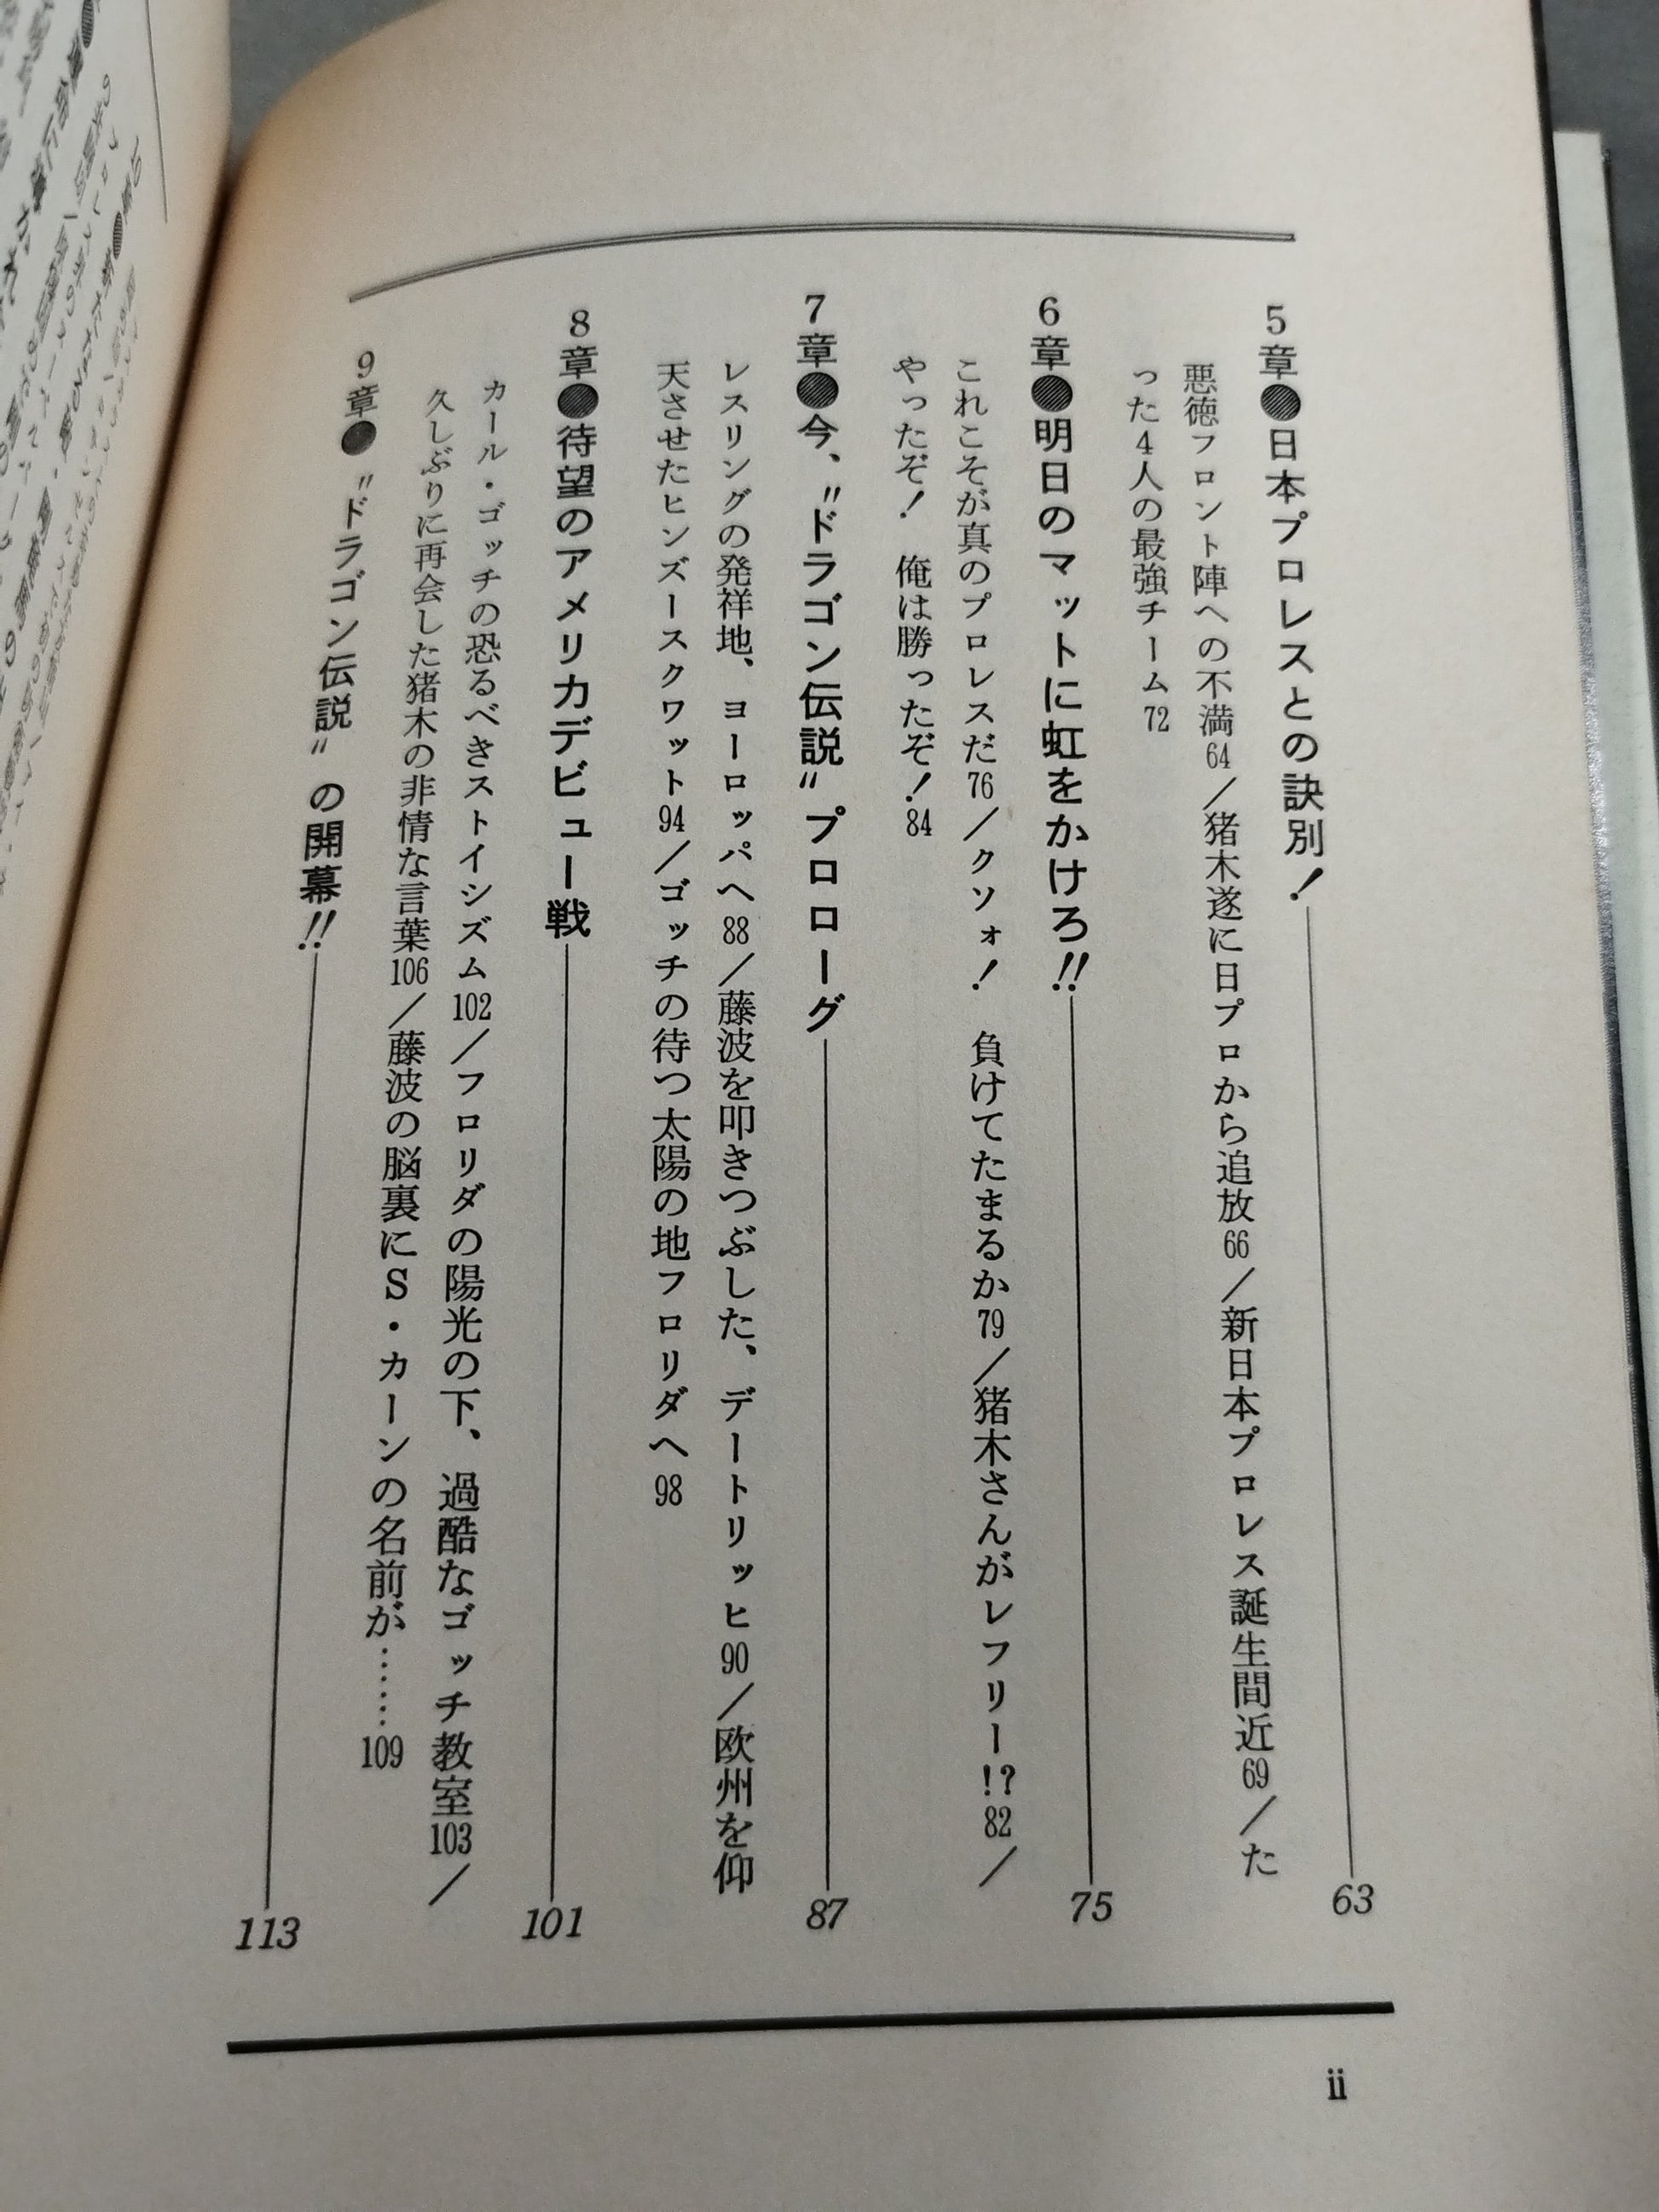 5章●日本プロレスとの訣別！ 63
悪徳フロント陣への不満64／猪木遂に日プロから追放66／新日本プロレス誕生間近69／た
った4人の最強チーム72
6章●明日のマットに虹をかけろ!! 75
これこそが真のプロレスだ76／クソォ！　負けてたまるか79／猪木さんがレフリー!?82／
やったぞ！　俺は勝ったぞ！84
7章●今、〝ドラゴン伝説〟プロローグ 87
レスリングの発祥地、ヨーロッパへ88／藤波を叩きつぶした、デートリッヒ90／欧州を仰
天させたヒンズースクワット94／ゴッチの待つ太陽の地フロリダへ98
8章●待望のアメリカデビュー戦 101
カール・ゴッチの恐るべきストイシズム102／フロリダの陽光の下、過酷なゴッチ教室103／
久しぶりに再会した猪木の非情な言葉106／藤波の脳裏にS・カーンの名前が……109
9章●〝ドラゴン伝説〟の開幕!! 113
ii